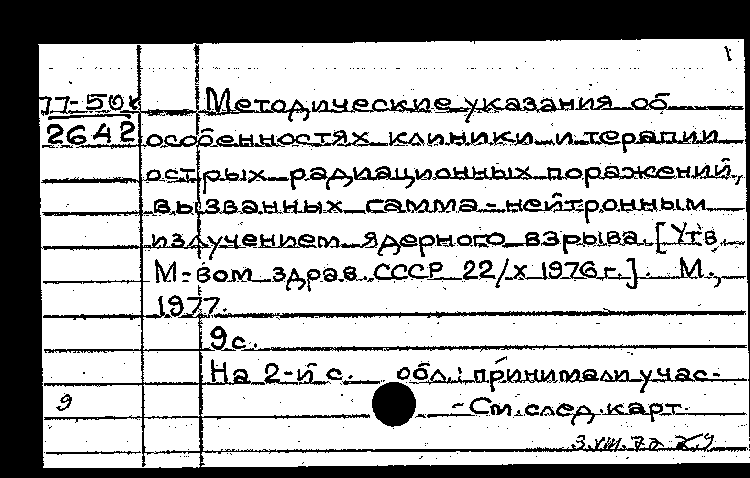 1
77-50к Методические указания об
2642 особенностях клиники и терапии
острых радиационных поражений,
вызванных гамма-нейтронным
излучением ядерного взрыва. [Утв.
М-вом здрав. СССР 22/X 1976 г.]. М.,
1977.
9с.
На 2-й с. обл.: принимали учас-
9 -См.след.карт.
3.VIII.